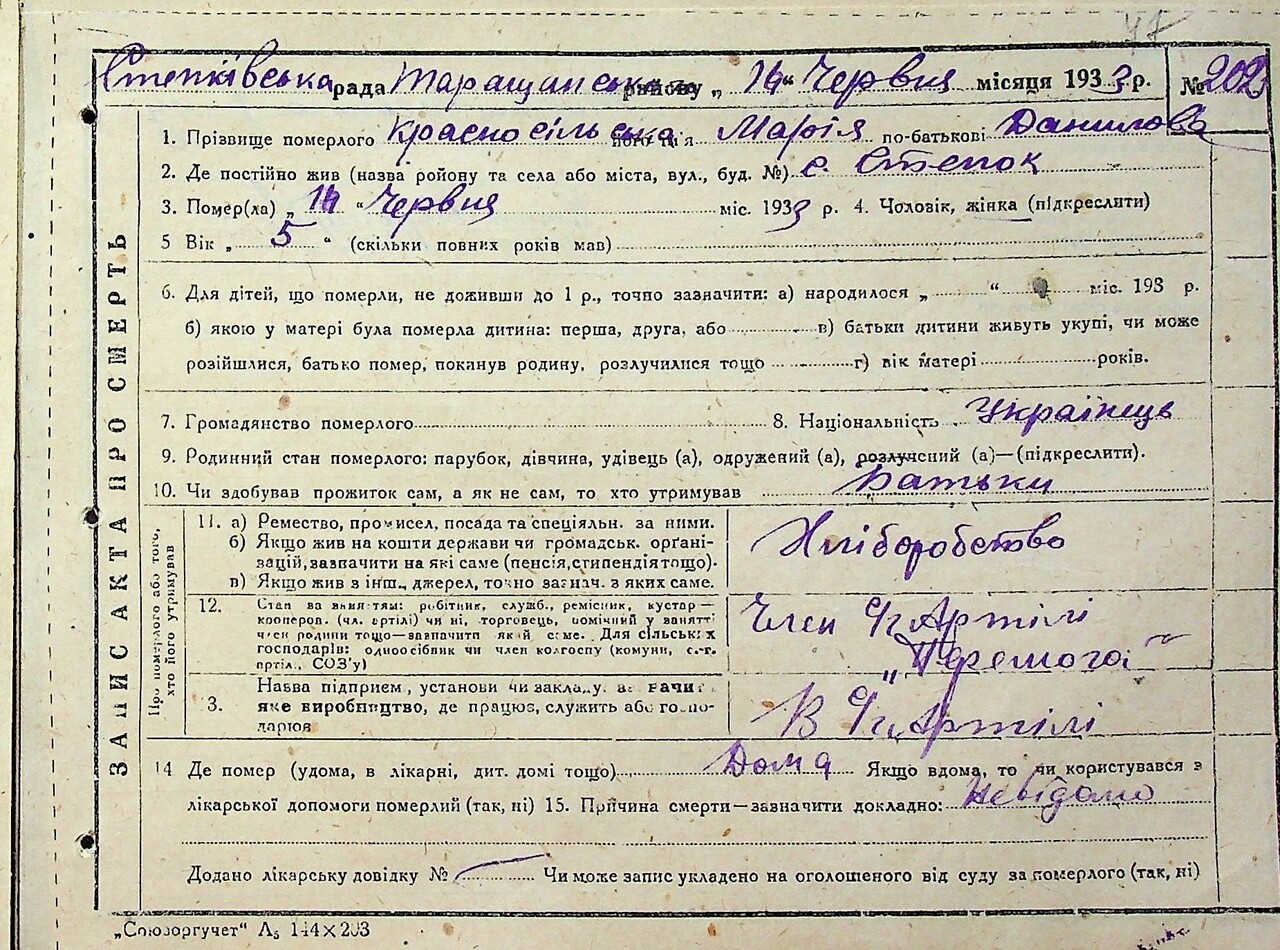 47
Степківська рада Таращанськ району „ 14 “ Червня місяця 1933 р. № 202
1. Прізвище померлого Красносільська ім'я Марія по-батькові Данилова
2. Де постійно жив (назва ройону та села або міста, вул., буд. №) с. Степок
3. Помер(ла) „ 14 “ Червня міс. 1933 р. 4. Чоловік, жінка (підкреслити)
5 Вік „ 5 “ (скільки повних років мав)
6. Для дітей, що померли, не доживши до 1 р., точно зазначити: а) народилося „ “ міс. 193 р.
б) якою у матері була померла дитина: перша, друга, або в) батьки дитини живуть укупі, чи може
розійшлися, батько помер, покинув родину, розлучилися тощо г) вік матері років.
7. Громадянство померлого 8. Національність Українець
9. Родинний стан померлого: парубок, дівчина, удівець (а), одружений (а), розлучений (а)—(підкреслити).
10. Чи здобував прожиток сам, а як не сам, то хто утримував Батьки
ЗАПИС АКТА ПРО СМЕРТЬ
Про померлого або того, хто його утримував
11. а) Ремество, промисел, посада та спеціяльн. за ними.
б) Якщо жив на кошти держави чи громадськ. орґані-
зацій, зазначити на які саме (пенсія, стипендія тощо).
в) Якщо жив з інш. джерел, точно зазнач. з яких саме.
Хліборобство
12. Стан за заняттям: робітник, служб., ремісник, кустар—
кооперов. (чл. артілі) чи ні, торговець, помічний у занятті
член родини тощо—зазначити який саме. Для сільських
господарів: одноосібник чи член колгоспу (комуни, с.-г.
артіл., СОЗ'у)
Член С/г Артілі
„Перемога“
3. Назва підприєм, установи чи закладу, зазначит.
яке виробництво, де працює, служить або госпо-
дарює
В С/г Артілі
14 Де помер (удома, в лікарні, дит. домі тощо) Дома Якщо вдома, то чи користувався з
лікарської допомоги померлий (так, ні) 15. Причина смерти—зазначити докладно: Невідомо
Додано лікарську довідку № Чи може запис укладено на оголошеного від суду за померлого (так, ні)
„Союзоргучет“ А5 144×203